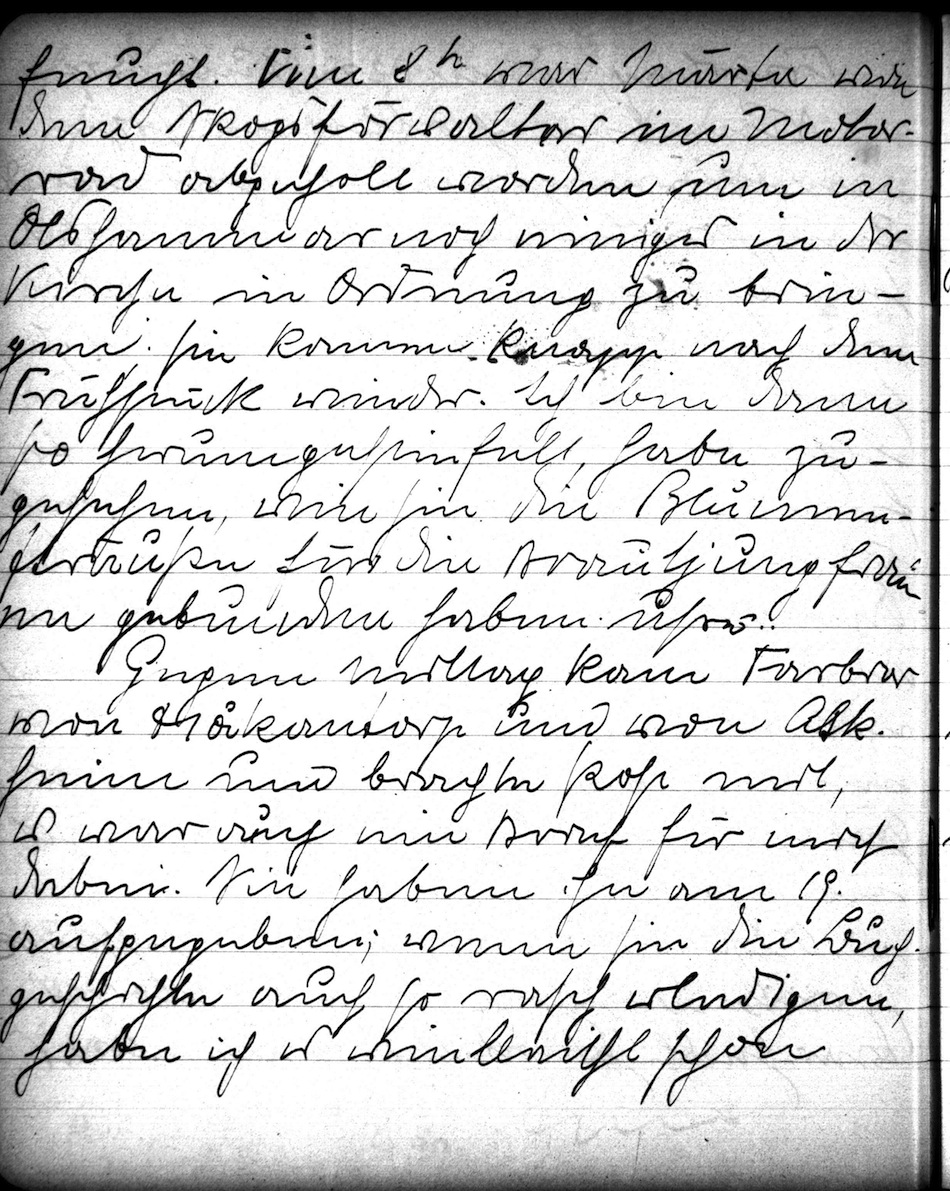 feucht. Um 8h war Märta von
dem Skogsförvalter im Motor-
rad abgeholt worden um in
Olshammar noch einiges in der
Kirche in Ordnung zu brin-
gen. Sie kamen knapp nach dem
Frühstück wieder. Ich bin dann
so herumgestiefelt, habe zu-
gesehen, wie sie die Blumen-
sträuße für die Brautjungfrau
en gebunden haben usw..
Gegen Mittag kam Farbror
von Håkantorp und von Ask-
heim und brachte Post mit,
es war auch ein Brief für mich
dabei. Sie haben ihn am 19.
aufgegeben; wenn sie die Buch-
geschichte auch so rasch erledigen,
habe ich es vielleicht schon